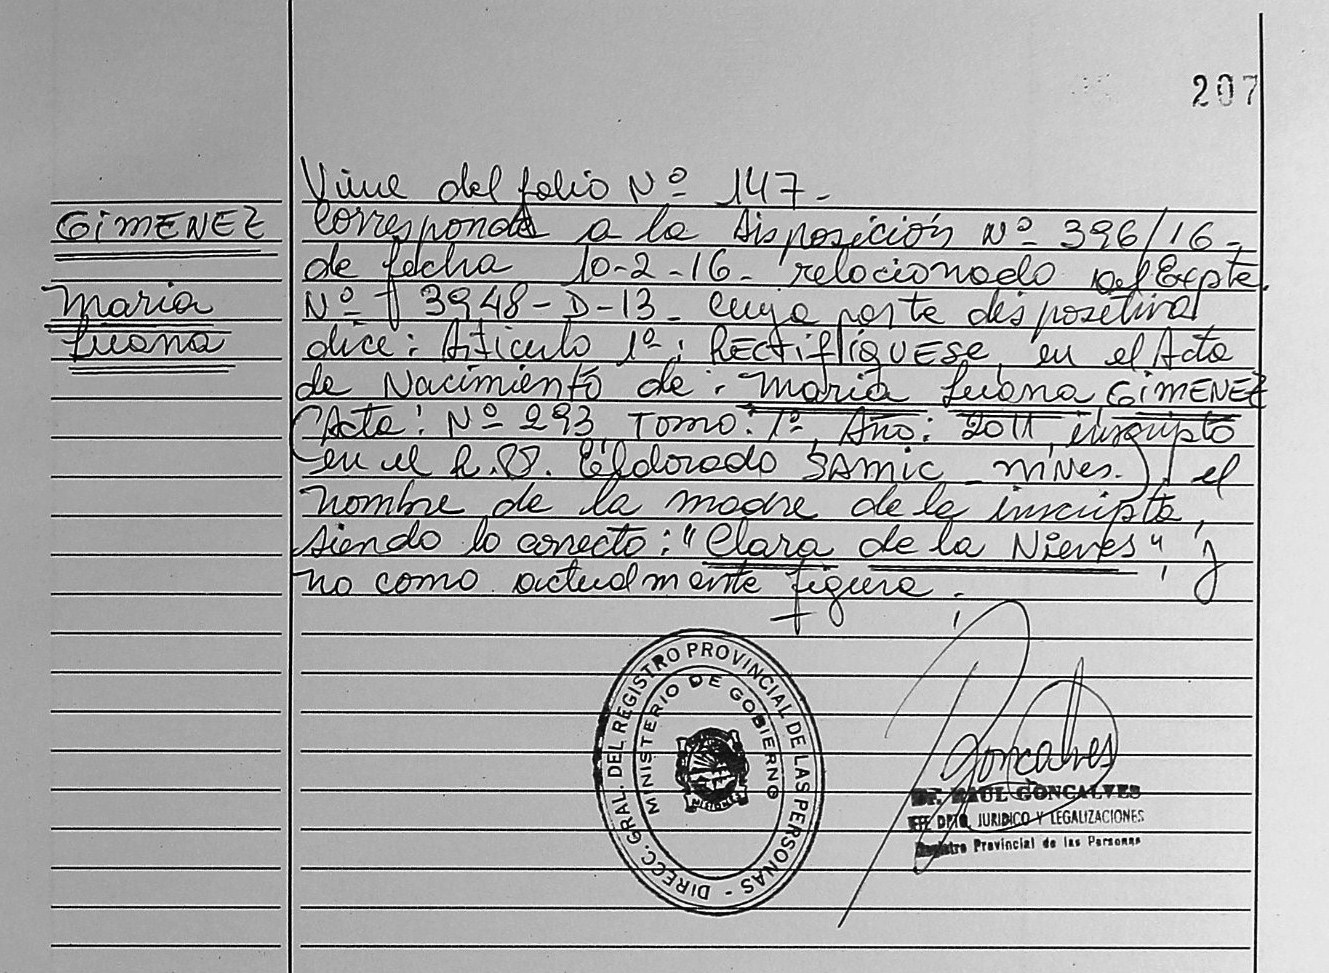 207
Viene del folio Nº 147-
GIMENEZ
Maria
Luana
Corresponde a la Disposición Nº 396/16-
de fecha 10-2-16- relacionado al Expte.
Nº 3948-D-13- cuya parte dispositiva
dice: Articulo 1º: RECTIFIQUESE en el Acta
de Nacimiento de: Maria Luana GIMENEZ
(Acta: Nº 293 Tomo: 1º, Año: 2011, inscripto
en el R.P. Eldorado SAMIC - Mnes.), el
nombre de la madre de la inscripta,
siendo lo correcto: "Clara de la Nieves", y
no como actualmente figura.
DIRECC. GRAL. DEL REGISTRO PROVINCIAL DE LAS PERSONAS -
MINISTERIO DE GOBIERNO
MISIONES
Goncalves
Dr. RAUL GONCALVES
JEFE DPTO. JURIDICO Y LEGALIZACIONES
Registro Provincial de las Personas